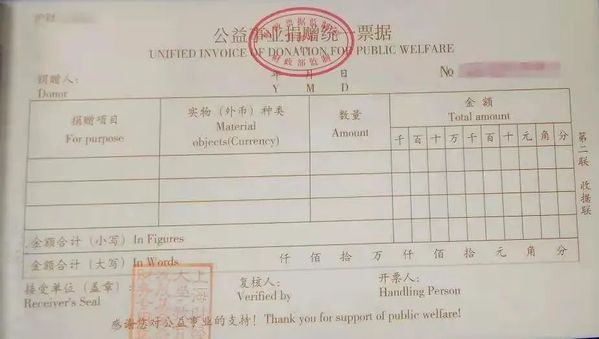 公益事业捐赠统一票据
UNIFIED INVOICE OF DONATION FOR PUBLIC WELFARE
财政部监制
捐赠人： 年 月 日 No
Donor Y M D
捐赠项目 实物（外币）种类 数量 金额
For purpose Material objects(Currency) Amount Total amount
千 百 十 万 千 百 十 元 角 分
第二联 收据联
金额合计（小写）In Figures
金额合计（大写）In Words 仟 佰 拾 万 仟 佰 拾 元 角 分
接受单位（盖章）： 复核人： 开票人：
Receiver's Seal Verified by Handling Person
感谢您对公益事业的支持！Thank you for support of public welfare!